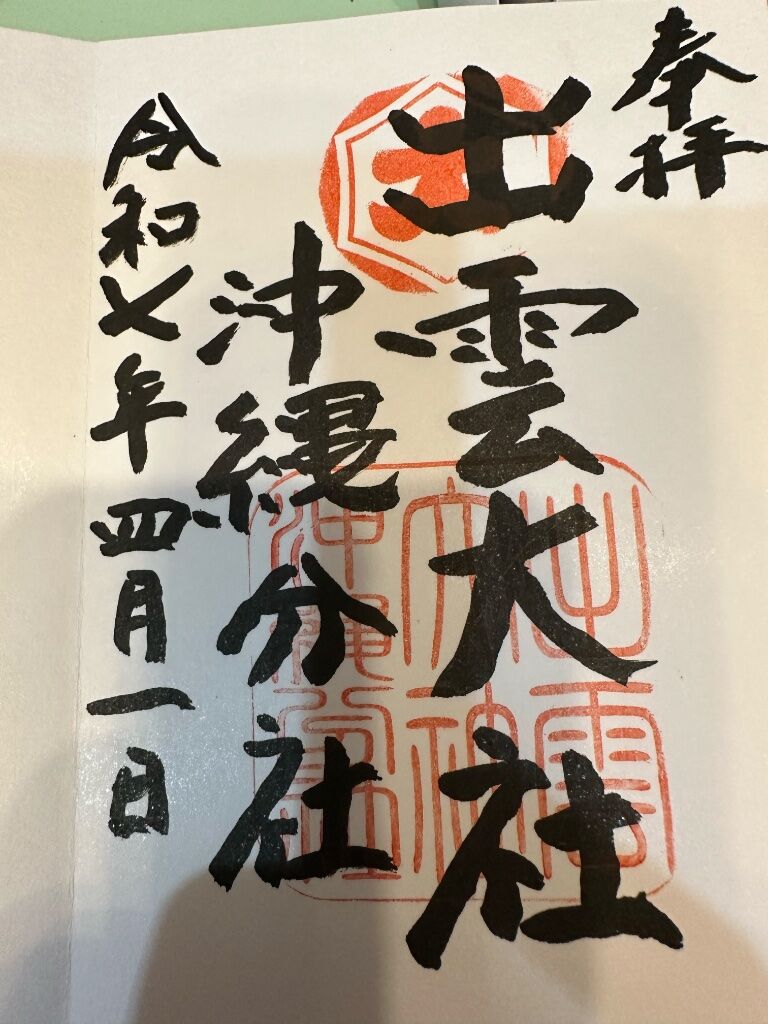 奉拝
出雲大社
沖縄分社
令和七年四月一日